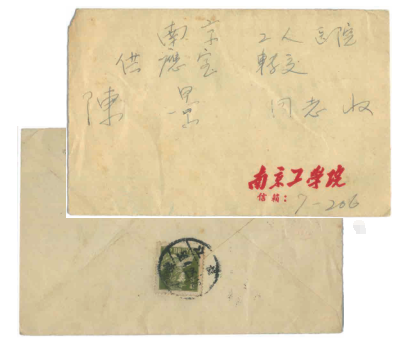 南京 工人医院
供应室 转交
陳 景 同志 收
南京工学院
信箱：7-206